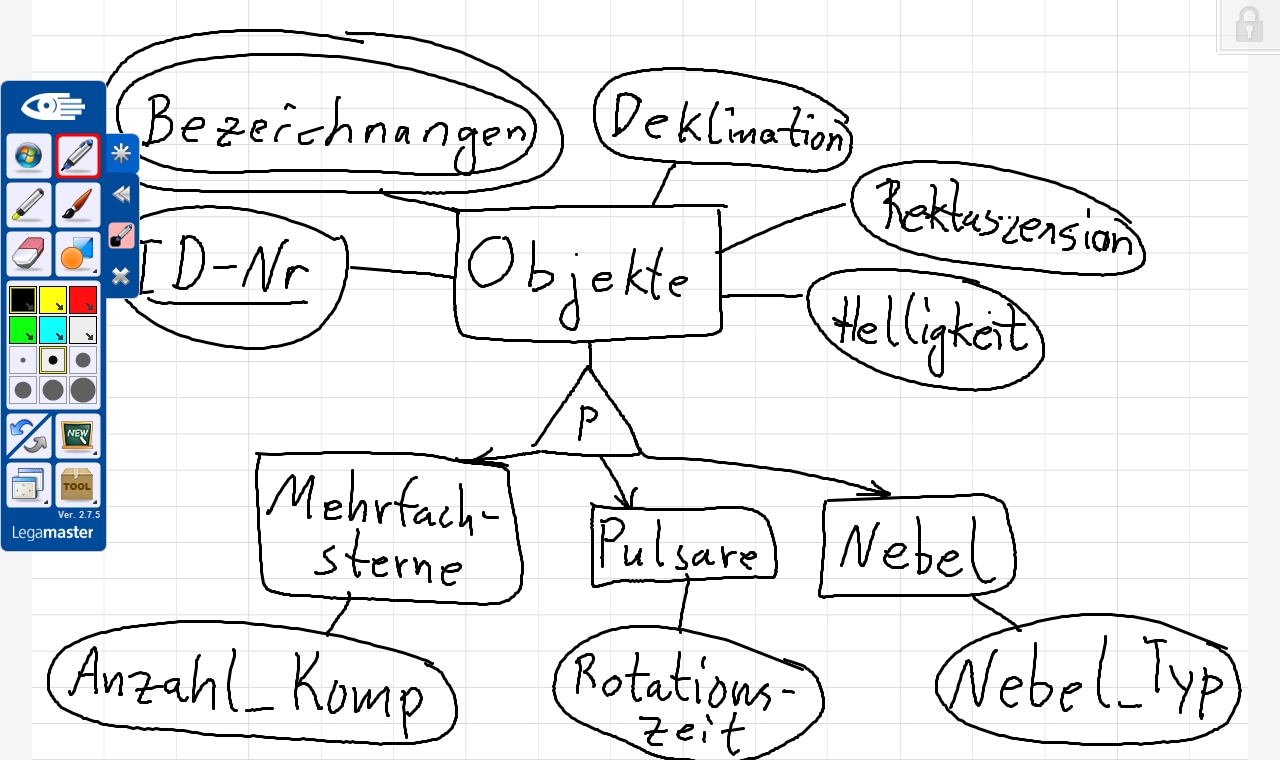 Bezeichnangen
Deklination
Rektaszension
ID-Nr
Objekte
Helligkeit
P
Mehrfach-
sterne
Pulsare
Nebel
Anzahl_Komp
Rotations-
zeit
Nebel_Typ
NEW
TOOL
Ver. 2.7.5
Legamaster